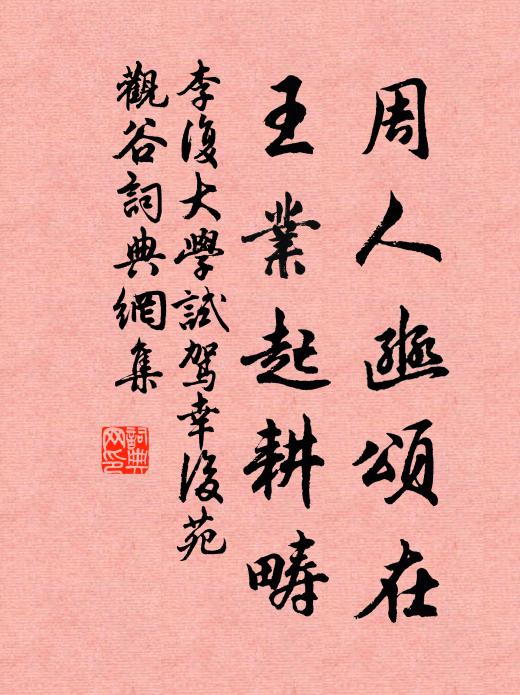 周人豳頌在
王業起耕疇
李復大學試駕幸後苑
觀谷詞典網集
詞典網印